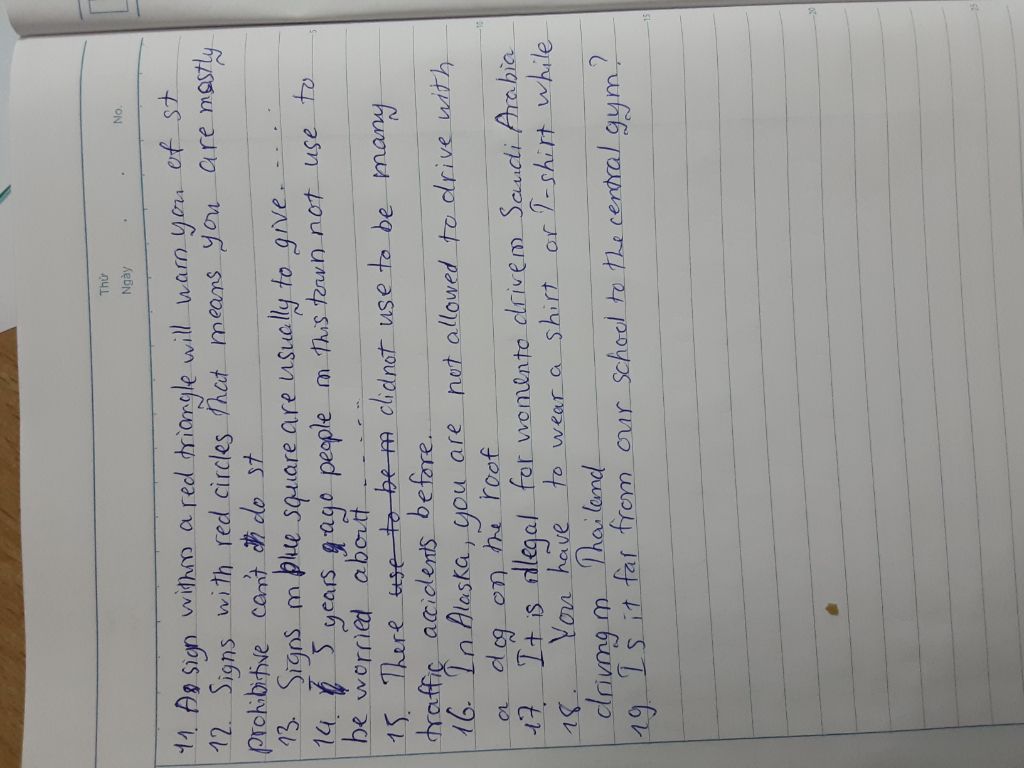 Thứ
Ngày
No.
11. A sign within a red triangle will warn you of st
12. Signs with red circles That means you are mostly
prohibitive can't do st
13. Signs in blue square are usually to give.....
14. 5 years ago people in this town not use to
be worried about.....
15. There use to be m didnot use to be many
traffic accidents before.
16. In Alaska, you are not allowed to drive with
a dog on the roof
17. It is illegal for women to drive in Saudi Arabia
18. You have to wear a shirt or T-shirt while
driving in Thailand
19. Is it far from our school to the central gym?
5
10
15
20
25